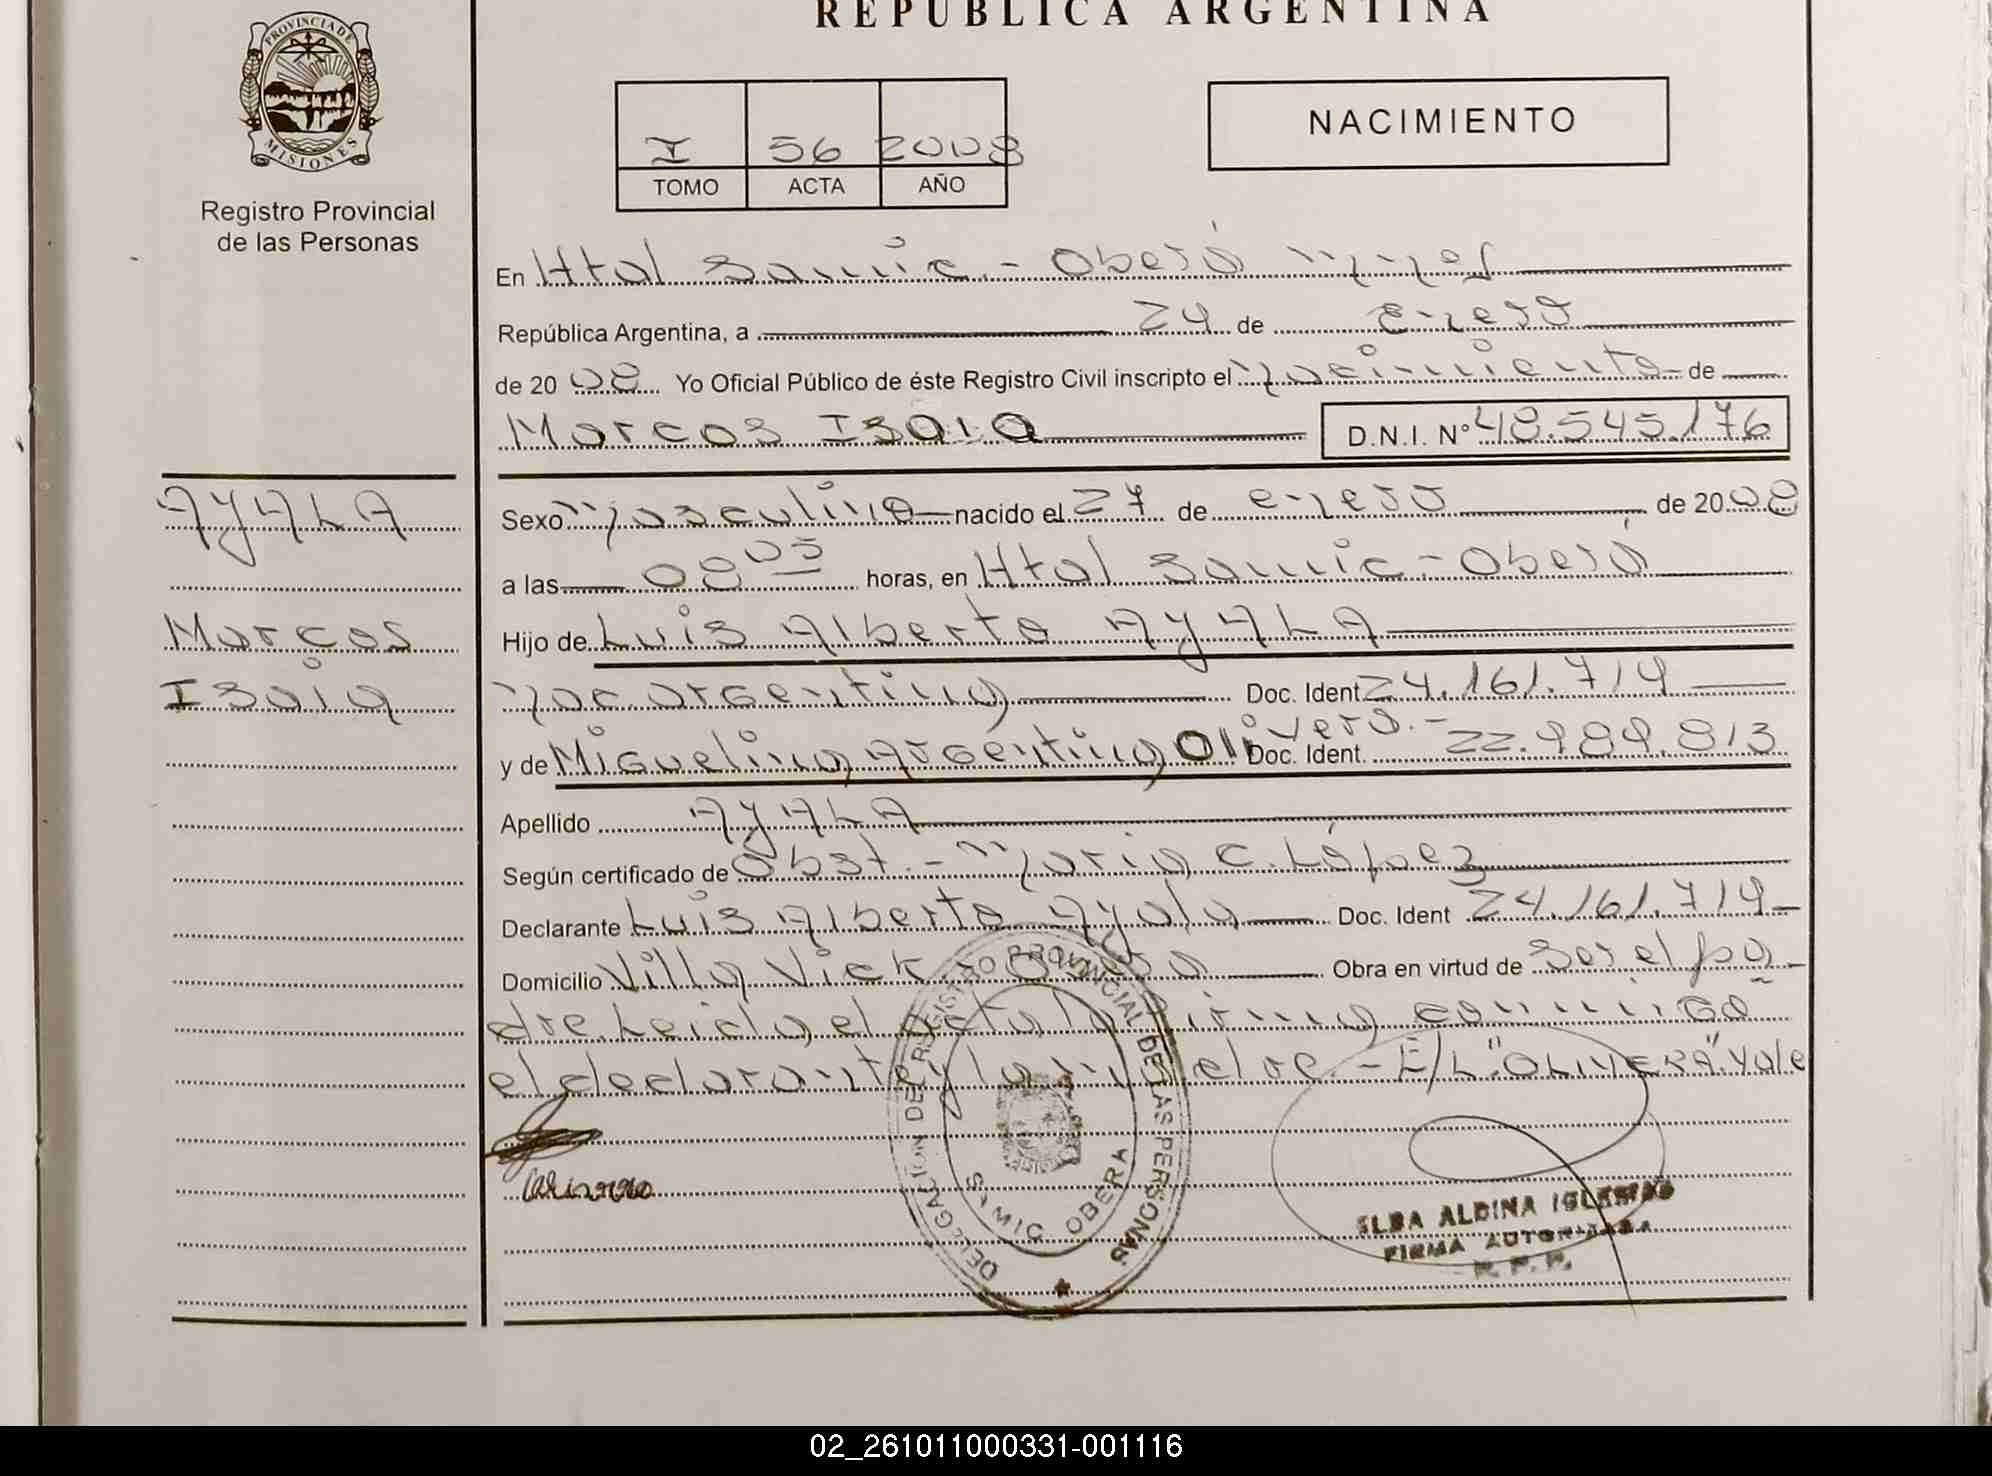 REPÚBLICA ARGENTINA
PROVINCIA DE MISIONES
Registro Provincial
de las Personas
I 56 2008
TOMO ACTA AÑO
NACIMIENTO
En Htal Samic - Oberá Mnes
República Argentina, a 24 de enero
de 2008 Yo Oficial Público de éste Registro Civil inscripto el Nacimiento de
Marcos Isaia D.N.I. Nº 48.545.176
AYALA
Marcos
Isaia
Sexo Masculino nacido el de enero de 2008
a las 08 05 horas, en Htal Samic - Oberá
Hijo de Luis Alberto AYALA
Nac. argentina Doc. Ident 24.161.719
y de Miguelina Argentina Olivera.- Doc. Ident. 22.989.813
Apellido AYALA
Según certificado de Obst. - Maria C. López
Declarante Luis Alberto Ayala Doc. Ident 24.161.719
Domicilio Villa Vick - Oberá Obra en virtud de ser el pa-
dre. Leida el acta la firma conmigo
el declarante y la madre - E/L "OLIVERA" Vale
DELEGACIÓN DE REGISTRO PROVINCIAL DE LAS PERSONAS
SAMIC OBERA
ELBA ALDINA IGLESIAS
FIRMA AUTORIZADA
R. P. P.
02_261011000331-001116